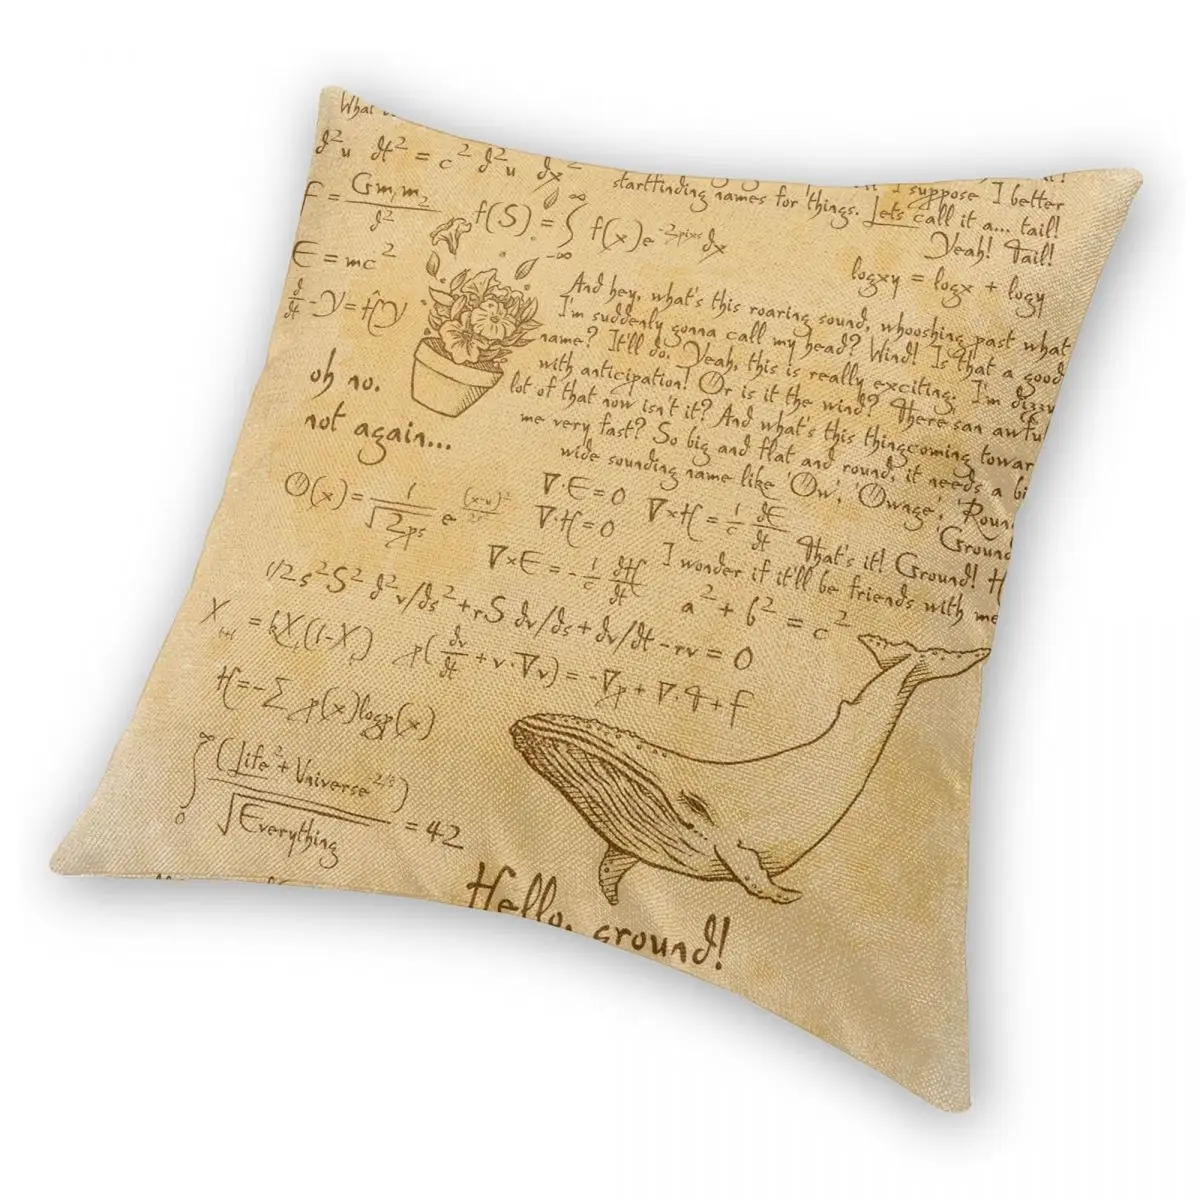 What
d²u dt² = c² d²u dx²
F = Gm₁m₂ / d²
E = mc²
d/dt - Y = ĤY
f(S) = ∫ ∞ -∞ f(x)e -2pixs dx
I suppose I better
startfinding names for things. Lets call it a... tail!
Yeah! Tail!
logxy = logx + logy
And hey, what's this roaring sound, whooshing past what
I'm suddenly gonna call my head? Wind! Is that a good
name? It'll do. Yeah, this is really exciting. I'm dizzy
with anticipation! Or is it the wind? There san awfu
lot of that now isn't it? And what's this thingcoming towar
me very fast? So big and flat and round, it needs a bi
wide sounding name like 'Ow', 'Ownge', 'Roun
'Ground
That's it! Ground! H
I wonder if it'll be friends with me
oh no.
not again...
O(x) = 1 / √2ps e (x-u)² / 2s²
∇·E = 0
∇·H = 0
∇×H = 1/c dE/dt
∇×E = - 1/c dH/dt
a² + b² = c²
1/2 s²S² d²v/ds² + rS dv/ds + dv/dt - rv = 0
X t+1 = kX t (1-X t)
p( dv/dt + v·∇v) = -∇p + ∇·T + f
H = -∑ p(x)logp(x)
∫ ∞ 0 (Life² + Universe -2/3) / √Everything = 42
Hello, ground!